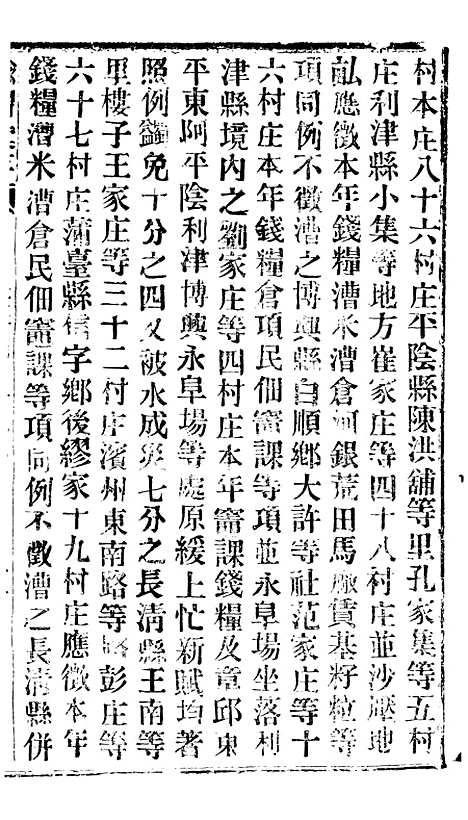 村本庄八十六村庄平陰縣陳洪舖等里孔家集等五村
庄利津縣小集等地方崔家庄等四十八村庄並沙壓地
畝應徵本年錢糧漕米漕倉河銀荒田馬廠賃基籽粒等
項同例不徵漕之博興縣白順鄉大許等社范家庄等十
六村庄本年錢糧倉項民佃竈課等項並永阜場坐落利
津縣境內之劉家庄等四村庄本年竈課錢糧及章邱東
平東阿平陰利津博興永阜場等處原緩上忙新賦均著
照例蠲免十分之四又被水成災七分之長清縣王南等
里樓子王家庄等三十二村庄濱州東南路等路彭庄等
六十七村庄蒲臺縣信字鄉後繆家十九村庄應徵本年
錢糧漕米漕倉民佃竈課等項同例不徵漕之長清縣併